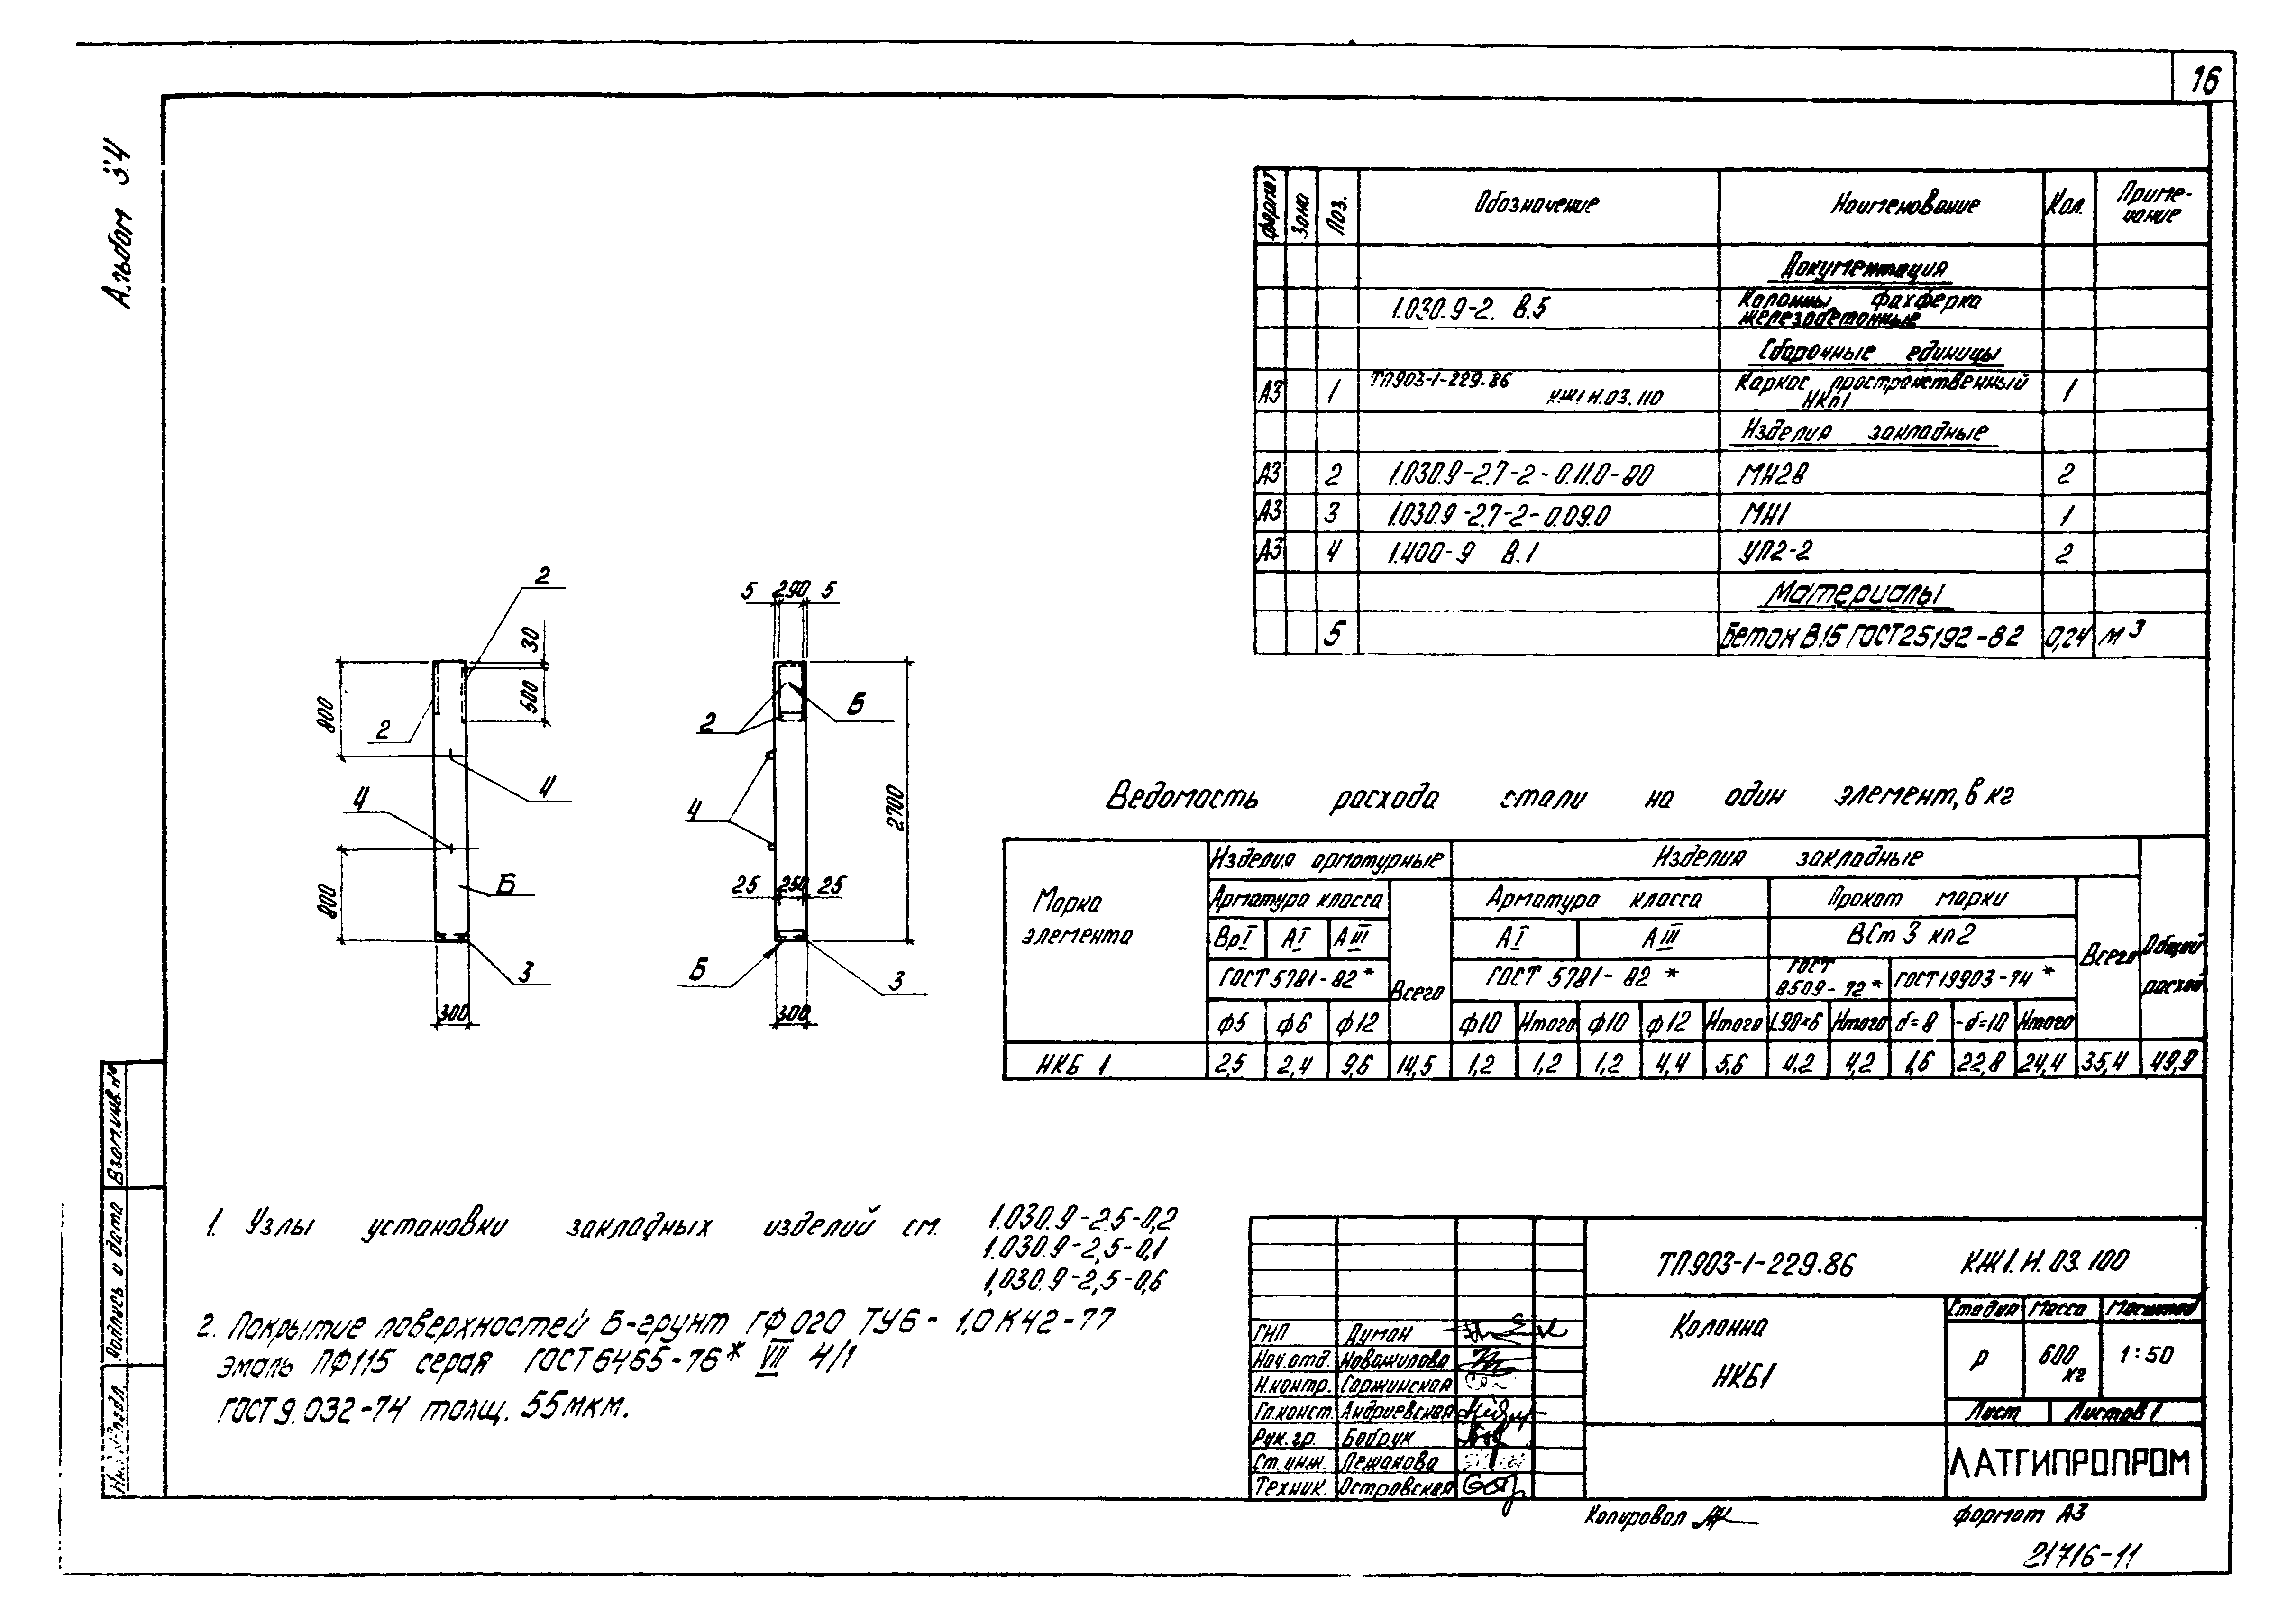 16
Альбом 3.4
Формат Зона Поз. Обозначение Наименование Кол. Примечание
Документация
1.030.9-2. В.5 Колонны фахферка железобетонные
Сборочные единицы
А3 1 ТП903-1-229.86 КЖ1И.03.110 Каркас пространственный НКп1 1
Изделия закладные
А3 2 1.030.9-2.7-2-0.11.0-80 МН28 2
А3 3 1.030.9-2.7-2-0.09.0 МН1 1
А3 4 1.400-9 В.1 УП2-2 2
Материалы
5 Бетон В.15 ГОСТ 25192-82 0,24 м3
2
30
500
800
2
4
4
800
Б
3
300
5 290 5
Б
2
4
2700
25 250 25
Б
3
300
Ведомость расхода стали на один элемент, в кг
Марка элемента Изделия арматурные Изделия закладные Общий расход
Арматура класса Всего Арматура класса Прокат марки Всего
ВрI АI АIII АI АIII ВСт 3 кп2
ГОСТ 5781-82* ГОСТ 5781-82* ГОСТ 8509-72* ГОСТ 19903-74*
ф5 ф6 ф12 ф10 Итого ф10 ф12 Итого L90×6 Итого δ=8 -δ=10 Итого
НКБ 1 2,5 2,4 9,6 14,5 1,2 1,2 1,2 4,4 5,6 4,2 4,2 1,6 22,8 24,4 35,4 49,9
1. Узлы установки закладных изделий см. 1.030.9-2.5-0,2
1.030.9-2,5-0,1
1,030.9-2,5-0,6
2. Покрытие поверхностей Б-грунт ГФ 020 ТУ6-1,0К42-77
эмаль ПФ115 серая ГОСТ 6465-76* VII 4/1
ГОСТ 9.032-74 толщ. 55мкм.
Взам.инв.№
Подпись и дата
Инв.№ подл.
ТП903-1-229.86 КЖ1.И.03.100
Колонна
НКБ1
Стадия Масса Масштаб
р 600 кг 1:50
Лист Листов 1
ЛАТГИПРОПРОМ
ГИП Думан
Нач.отд. Новожилова
Н.контр. Горжинская
Гл.конст. Андриевская
Рук.гр. Бобрук
Ст.инж. Лежакова
Техник. Островская
Копировал
Формат А3
21716-11